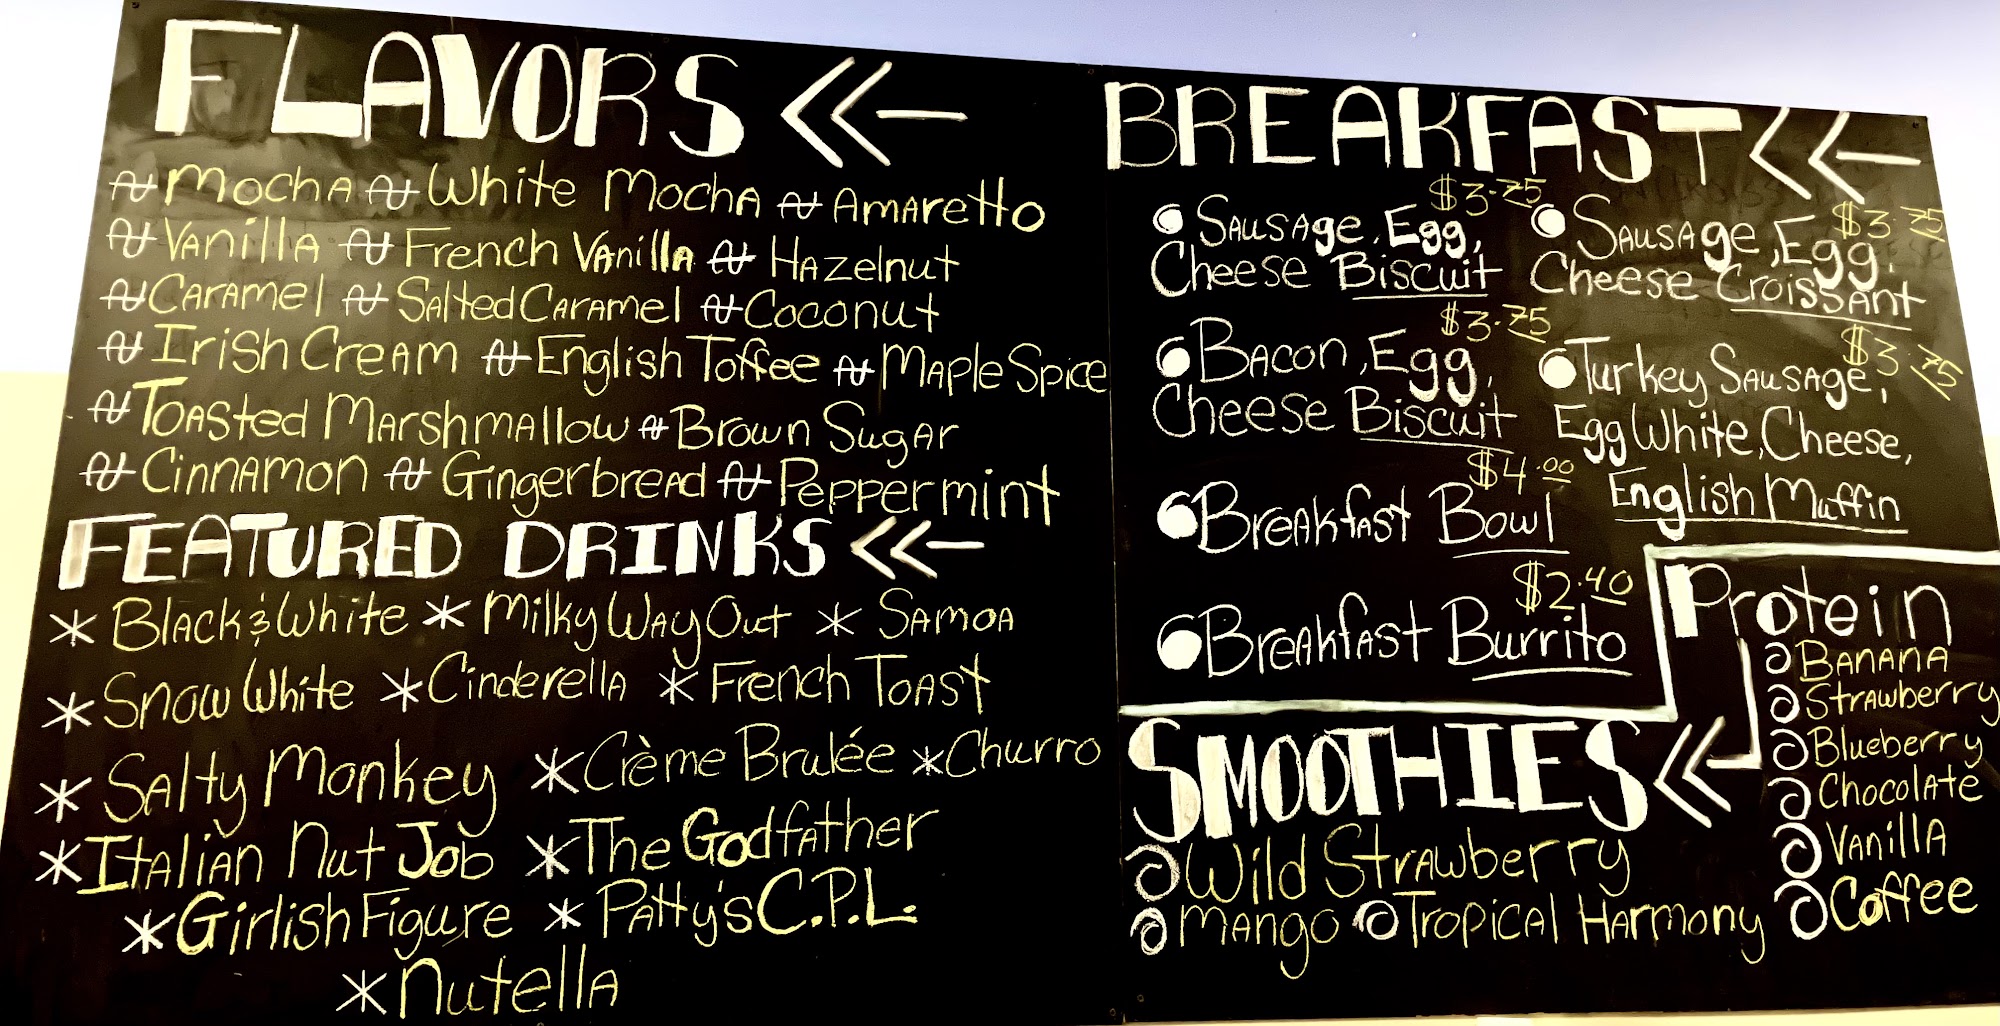 FLAVORS
Mocha White Mocha Amaretto
Vanilla French Vanilla Hazelnut
Caramel Salted Caramel Coconut
Irish Cream English Toffee Maple Spice
Toasted Marshmallow Brown Sugar
Cinnamon Gingerbread Peppermint
FEATURED DRINKS
Black & White Milky Way Out Samoa
Snow White Cinderella French Toast
Salty Monkey Crème Brulée Churro
Italian Nut Job The Godfather
Girlish Figure Patty's C.P.L.
Nutella
BREAKFAST
$3.75
Sausage, Egg,
Cheese Biscuit
$3.75
Bacon, Egg,
Cheese Biscuit
$4.00
Breakfast Bowl
$2.40
Breakfast Burrito
$3.75
Sausage, Egg,
Cheese Croissant
$3.75
Turkey Sausage,
Egg White, Cheese,
English Muffin
SMOOTHIES
Wild Strawberry
Mango Tropical Harmony
Protein
Banana
Strawberry
Blueberry
Chocolate
Vanilla
Coffee